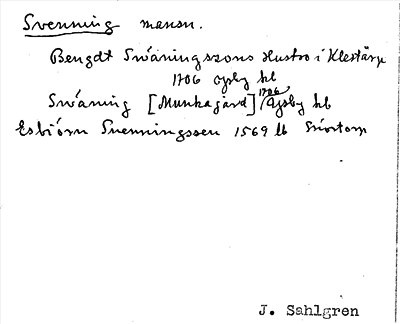 Svenning mansn.
Bengdt Swäningssons Hustro i Klestärp
1706 Ysby kb
Swäning [Munkagård] 1706 Ysby kb
Esbiörn Suenningssen 1569 lb
J. Sahlgren